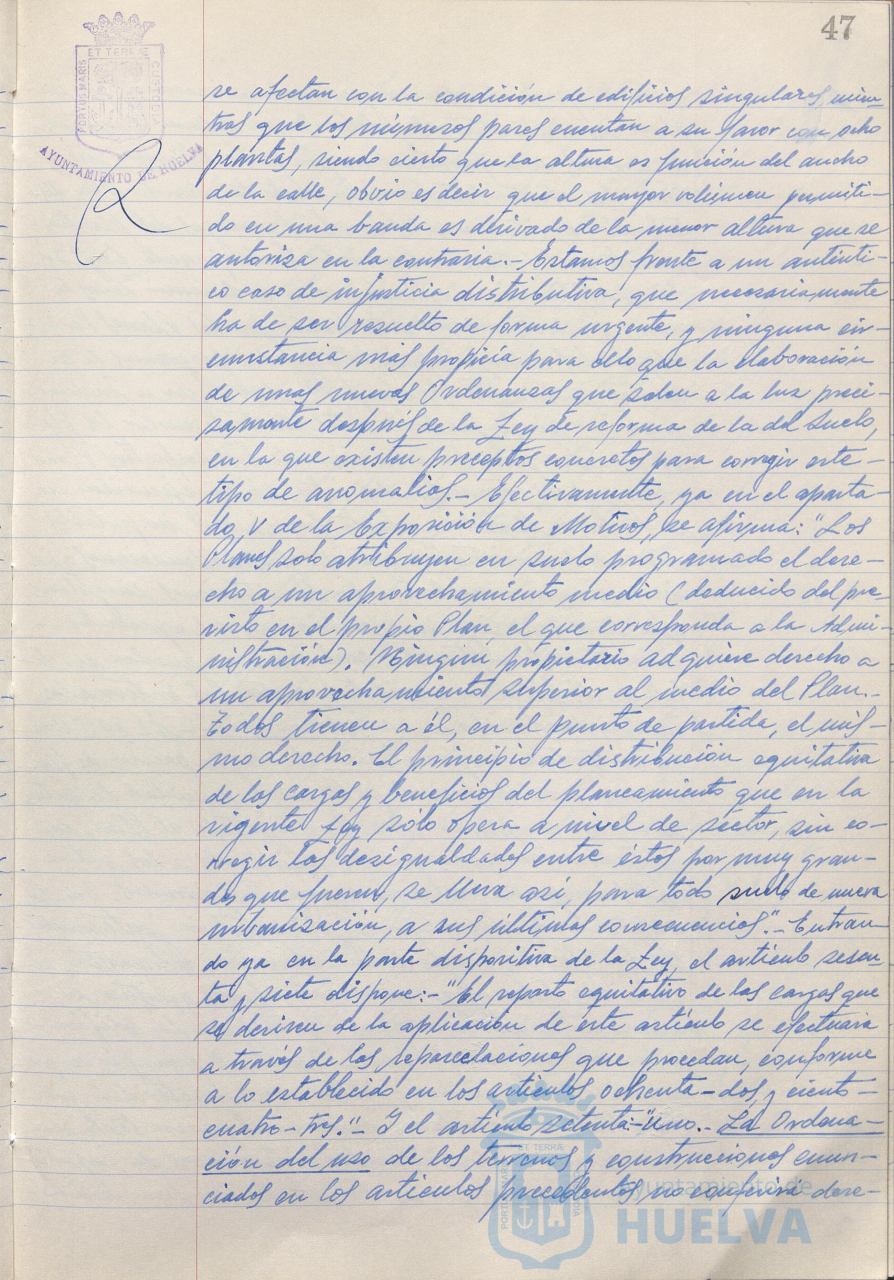 47
ET TERRÆ
PORTUS MARIS
CUSTODIA
AYUNTAMIENTO DE HUELVA
se afectan con la condición de edificios singulares, mien
tras que los números pares cuentan a su favor con ocho
plantas, siendo cierto que la altura es función del ancho
de la calle, obvio es decir que el mayor volúmen permiti-
do en una banda es derivado de la menor altura que se
autoriza en la contraria.- Estamos frente a un autenti-
co caso de injusticia distributiva, que necesariamente
ha de ser resuelto de forma urgente, y ninguna cir-
cunstancia más propicia para ello que la elaboración
de unas nuevas Ordenanzas que salen a la luz preci-
samente después de la Ley de reforma de la del Suelo,
en la que existen preceptos concretos para corregir este-
tipo de anomalias.- Efectivamente, ya en el aparta-
do, V de la Exposición de Motivos, se afirma: "Los
Planes solo atribuyen en suelo programado el dere-
cho a un aprovechamiento medio (deducido del pre-
visto en el propio Plan, el que corresponda a la Admi-
nistración). Ningún propietario adquiere derecho a
un aprovechamiento superior al medio del Plan.-
Todos tienen a él, en el punto de partida, el mis-
mo derecho. El principio de distribución equitativa
de las cargas y beneficios del planeamiento que en la
vigente Ley sólo opera a nivel de sector, sin co-
rregir las desigualdades entre éstos por muy gran-
des que fueren, se lleva así, para todo suelo de nueva
urbanización, a sus últimas consecuencias".- Entran-
do ya en la parte dispositiva de la Ley, el artículo sesen-
ta y siete dispone:- "El reparto equitativo de las cargas que
se deriven de la aplicación de este artículo se efectuará
a través de las reparcelaciones que procedan, conforme
a lo establecido en los artículos, ochenta-dos, y ciento-
cuatro-tres."- Y el artículo setenta:-"Uno.- La Ordena-
ción del uso de los terrenos y construcciones enun-
ciados en los artículos precedentes, no conferirá dere-
Ayuntamiento de
HUELVA